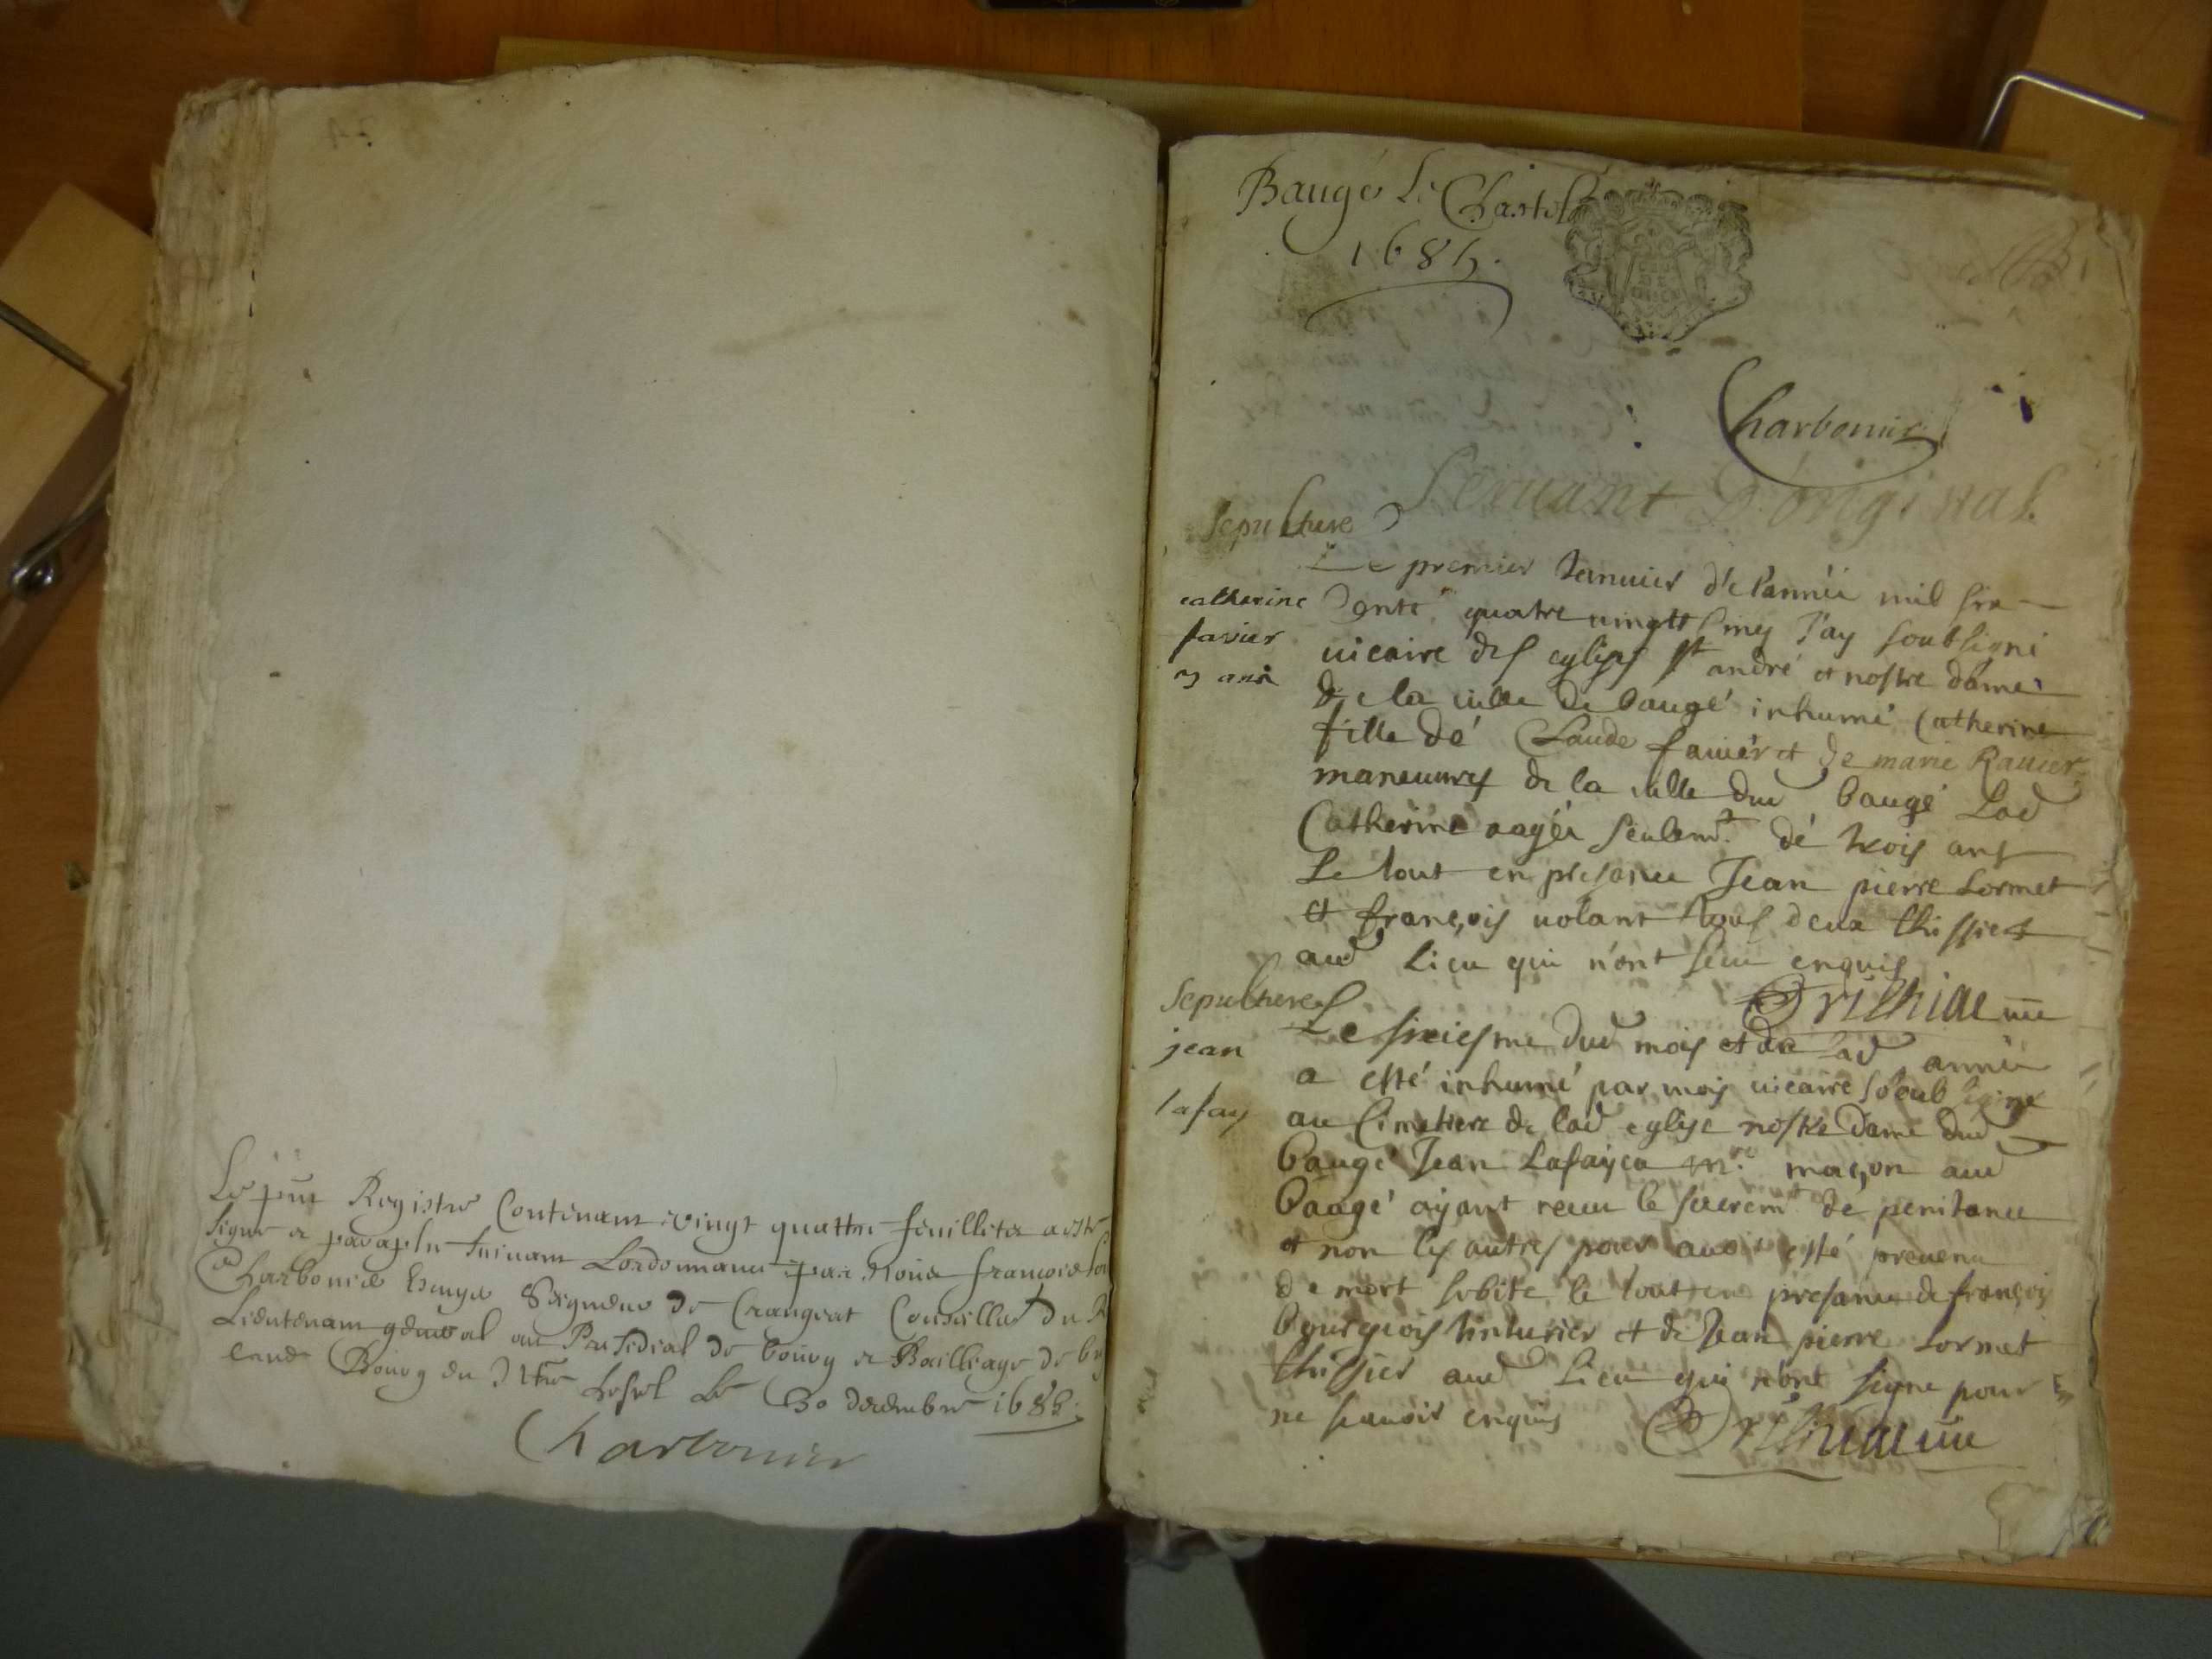 Le pnt Registre Contenant vingt quattre feuilletz a esté
signé et paraphe suivant Lordonnance par Nous françois
Charbonier Seigneur de Crangeat Conseiller du R
Lieutenant general au Presidial de bourg et Bailliage de
Bourg en hostel Le 30 decembre 1684
Charbonier
Baugé Le Chastel
1685.
Charbonier
1
Servant D'original
Sepulture
Le premier Januier de lannée mil six
cente quatre uingtt Cinq J'ay soubsigné
uicaire des eglises st andré et nostre dame
de la uille de baugé inhumé Catherine
fille dé Claude fauier et de marie Rauier
maneuures de la uille dud baugé Lad
Catherine aagéé seulemt dé trois ans
Le tout en presance Jean pierre Lormet
et françois uolant tous deux thissiers
aud Lieu qui n'ont sceu enquis
catherine
favier
3 ans
Sepultures
jean
lafay
Le sixiesme dud mois et de lad année
a esté inhumé par moy uicaire soubsigné
au Cimetiere de lad eglise nostre dame dud
baugé Jean Lafayea mre maçon aud
baugé ayant receu le sacremt dé penitance
et non les autres pour auoir esté preuenu
de mort subite le tout en presance de françois
bourgeois tinturier et de Jean pierre Lormet
thissier aud Lieu qui n'ont signe pour
ne scauoir enquis